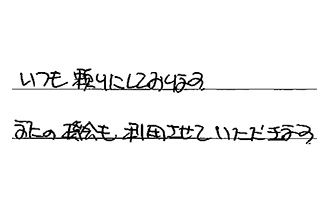 いつも頼りにしております。
またの機会も利用させていただきます。